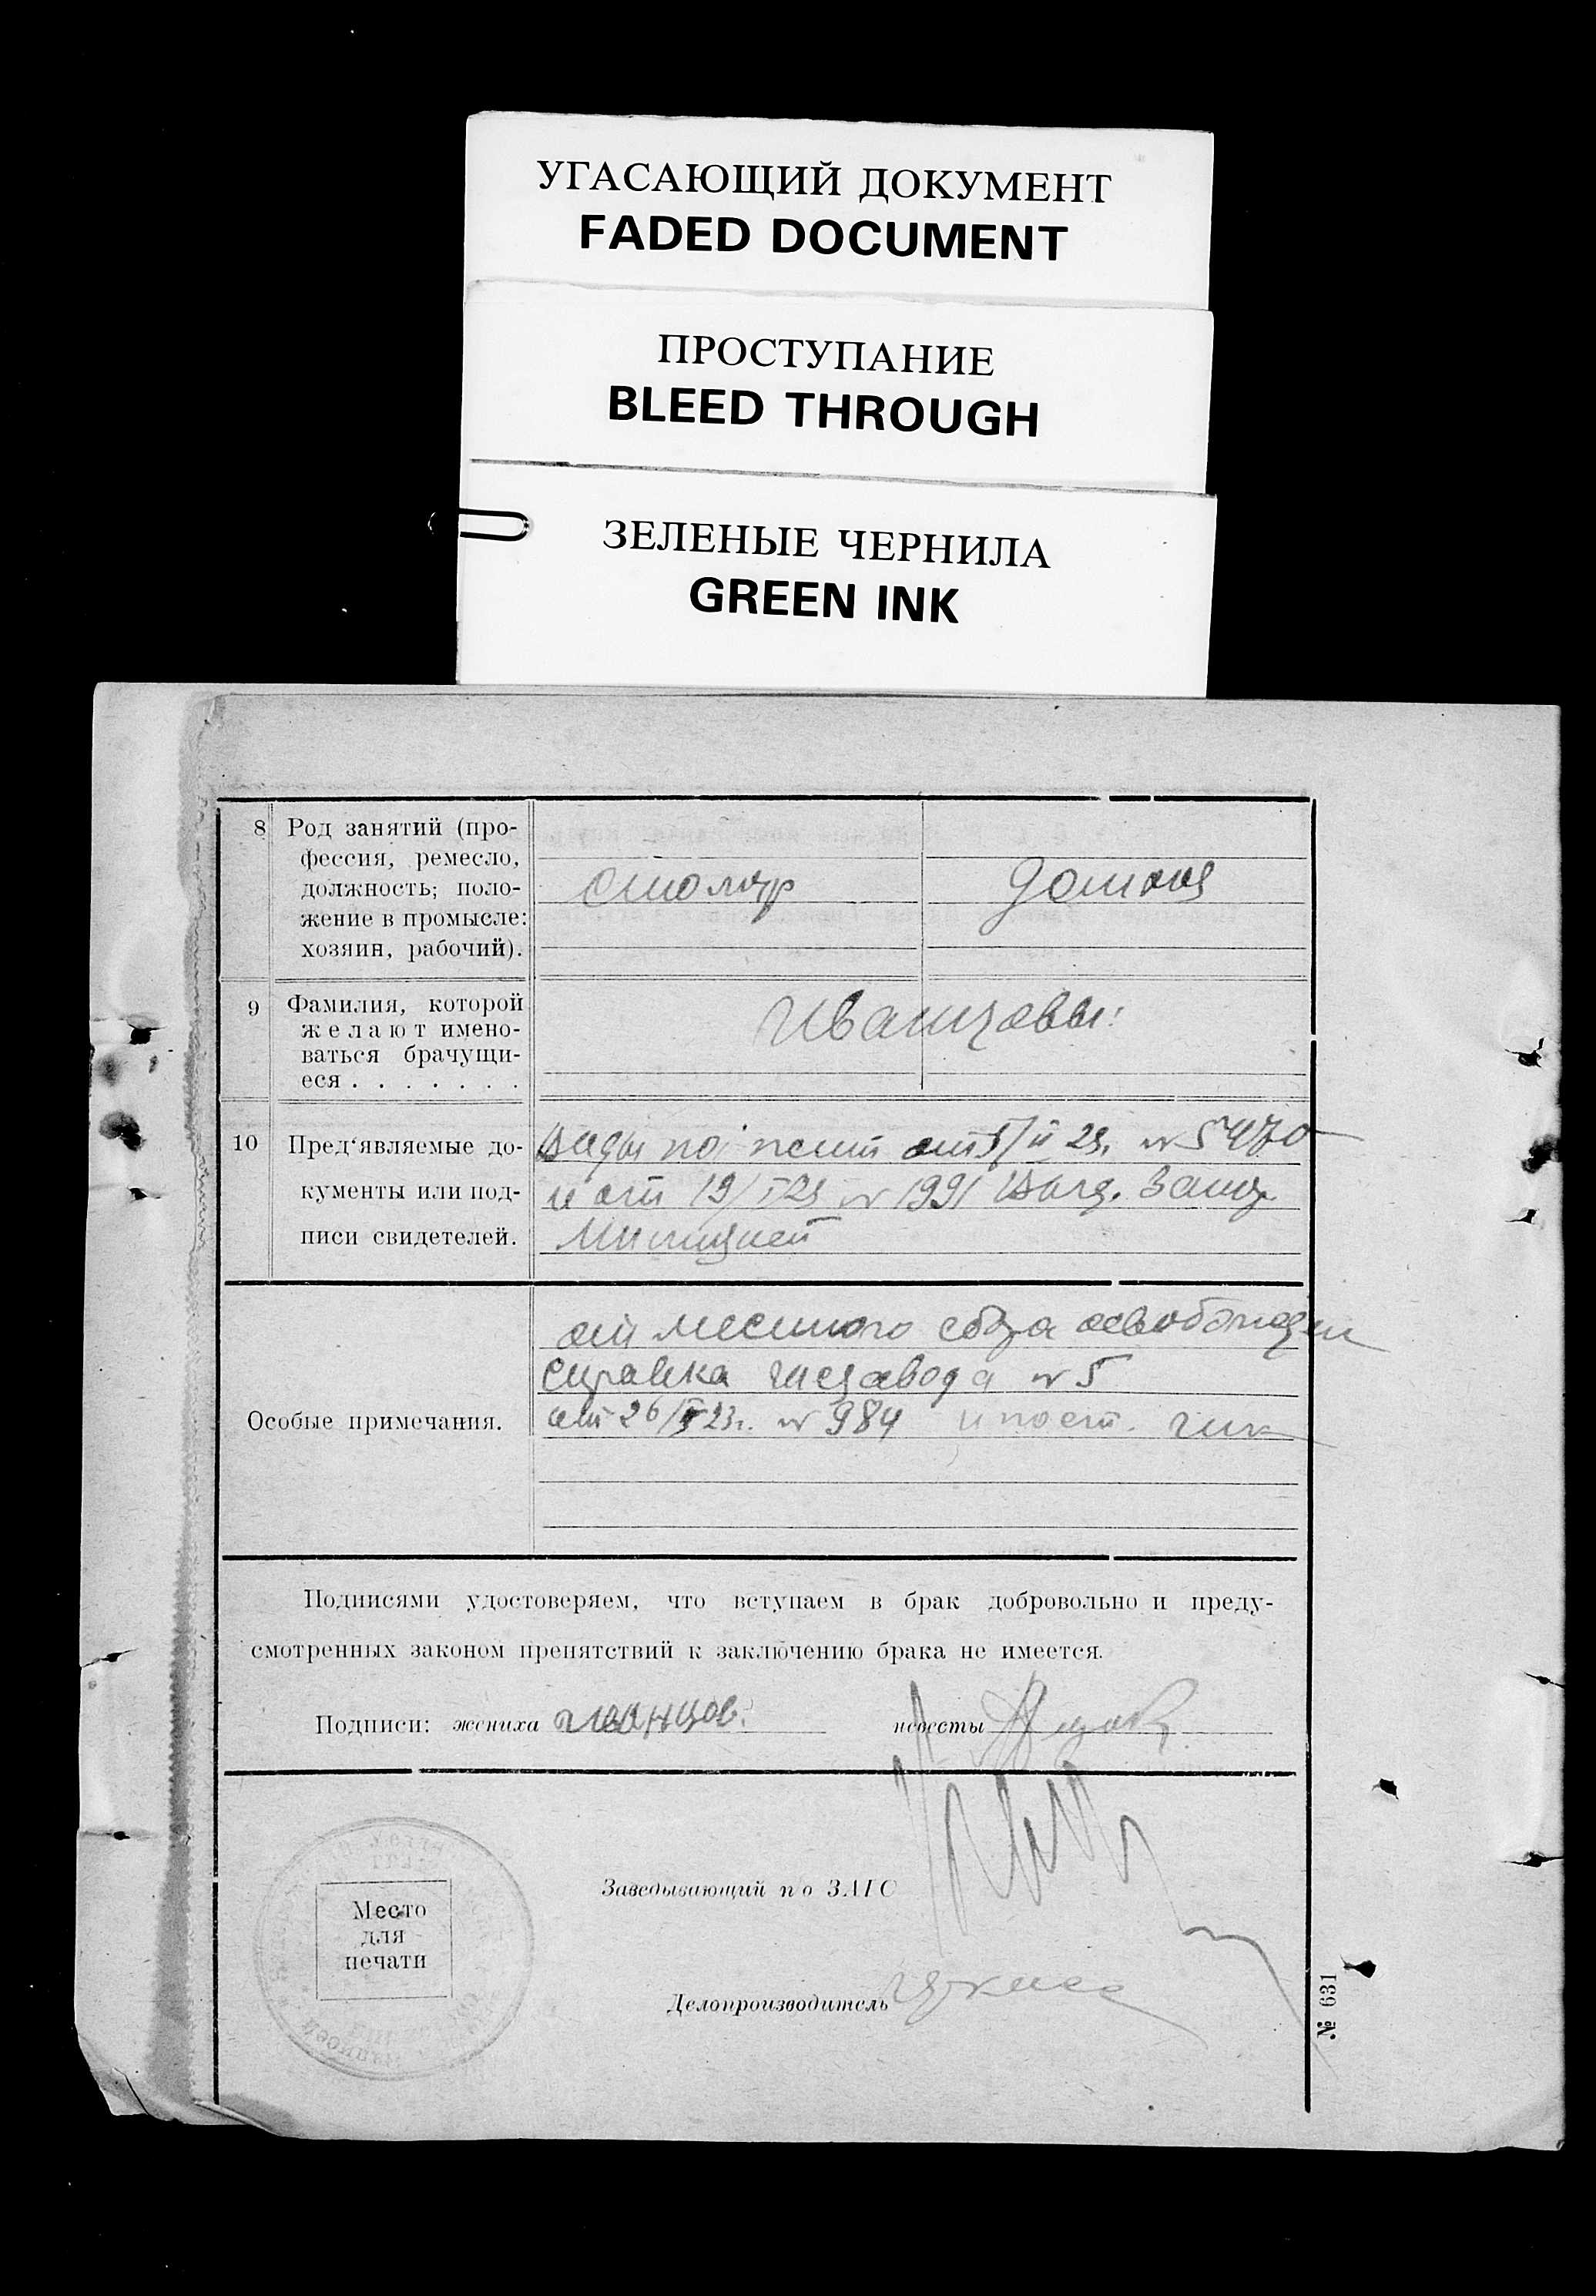 УГАСАЮЩИЙ ДОКУМЕНТ
FADED DOCUMENT
ПРОСТУПАНИЕ
BLEED THROUGH
ЗЕЛЕНЫЕ ЧЕРНИЛА
GREEN INK
8 Род занятий (про-
фессия, ремесло,
должность; поло-
жение в промысле:
хозяин, рабочий).
столяр
домохоз
9 Фамилия, которой
желают имено-
ваться брачущи-
еся . . . . . . .
Иванцовы
10 Пред'являемые до-
кументы или под-
писи свидетелей.
виды на жит от 5/II 23. № 5470
и от 19/I 23 № 1991
Милицией
Особые примечания.
от местного сбора освобожден
справка № 5
от 26/ 23г. № 984 и пост.
Подписями удостоверяем, что вступаем в брак добровольно и преду-
смотренных законом препятствий к заключению брака не имеется.
Подписи: жениха Иванцов. невесты
Заведывающий по ЗАГС
Место
для
печати
Делопроизводитель
№ 631